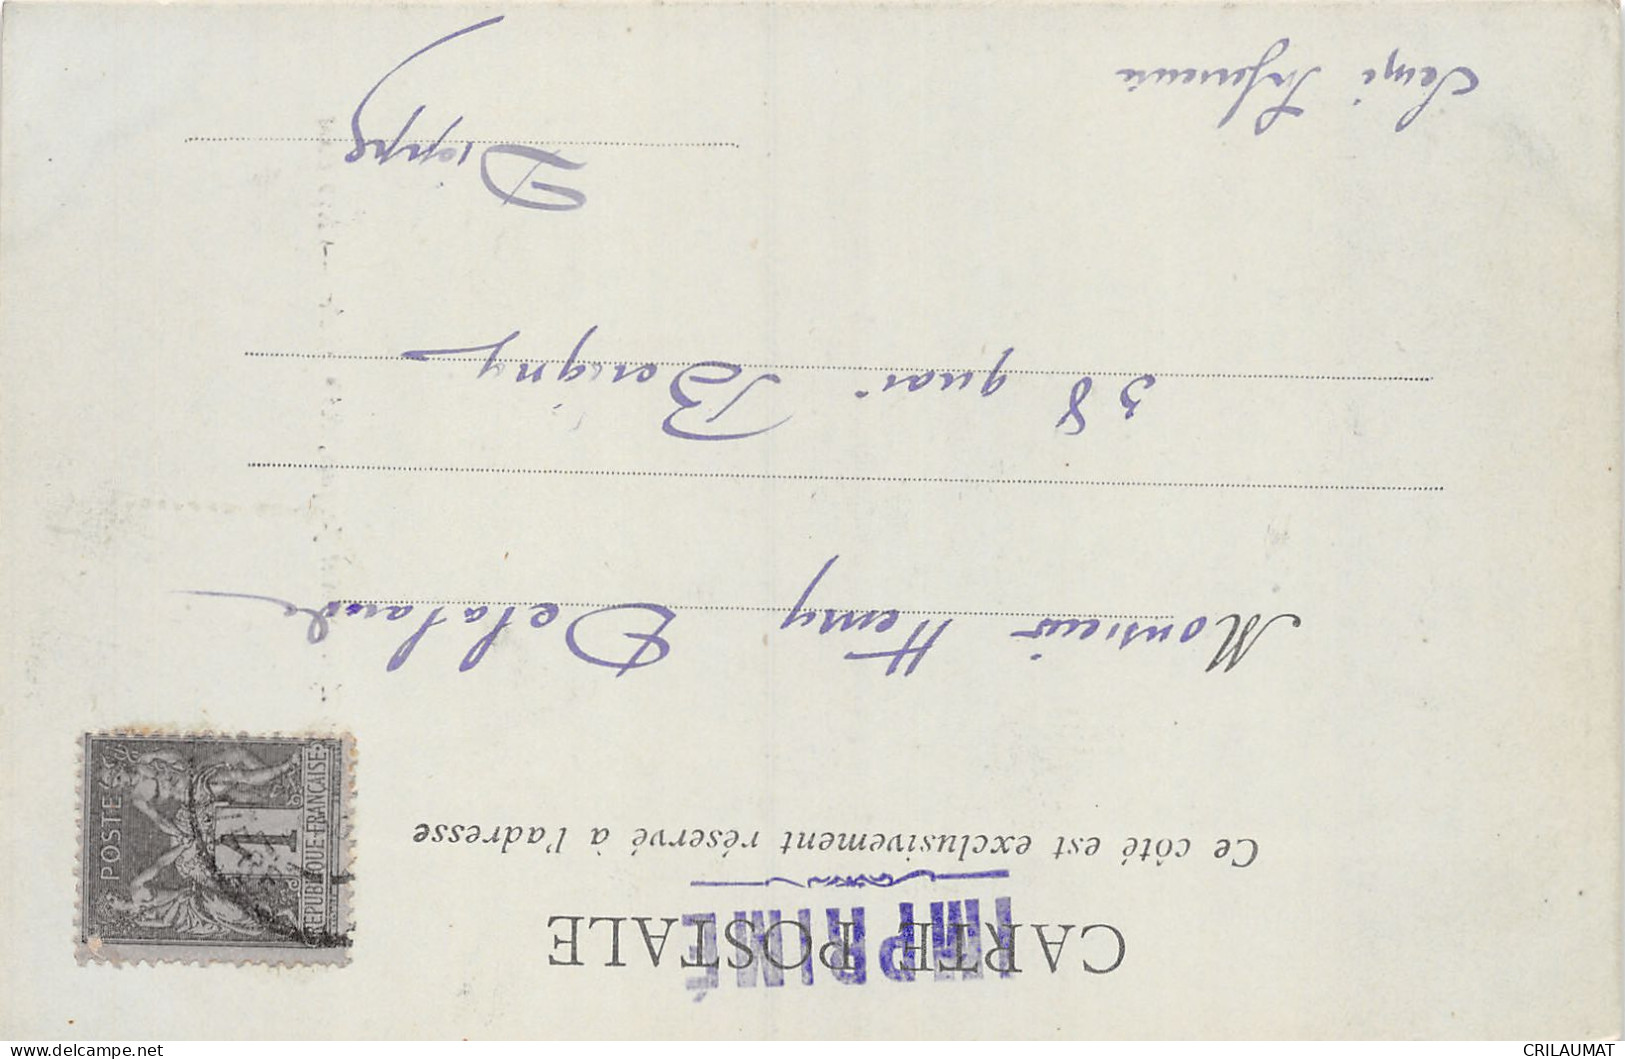 CARTE POSTALE
IMPRIMÉ
Ce côté est exclusivement réservé à l'adresse
POSTES
1
REPUBLIQUE FRANÇAISE
Monsieur Henry Delalande
38 quai Berigny
Dieppe
Inferieure
CRILAUMAT